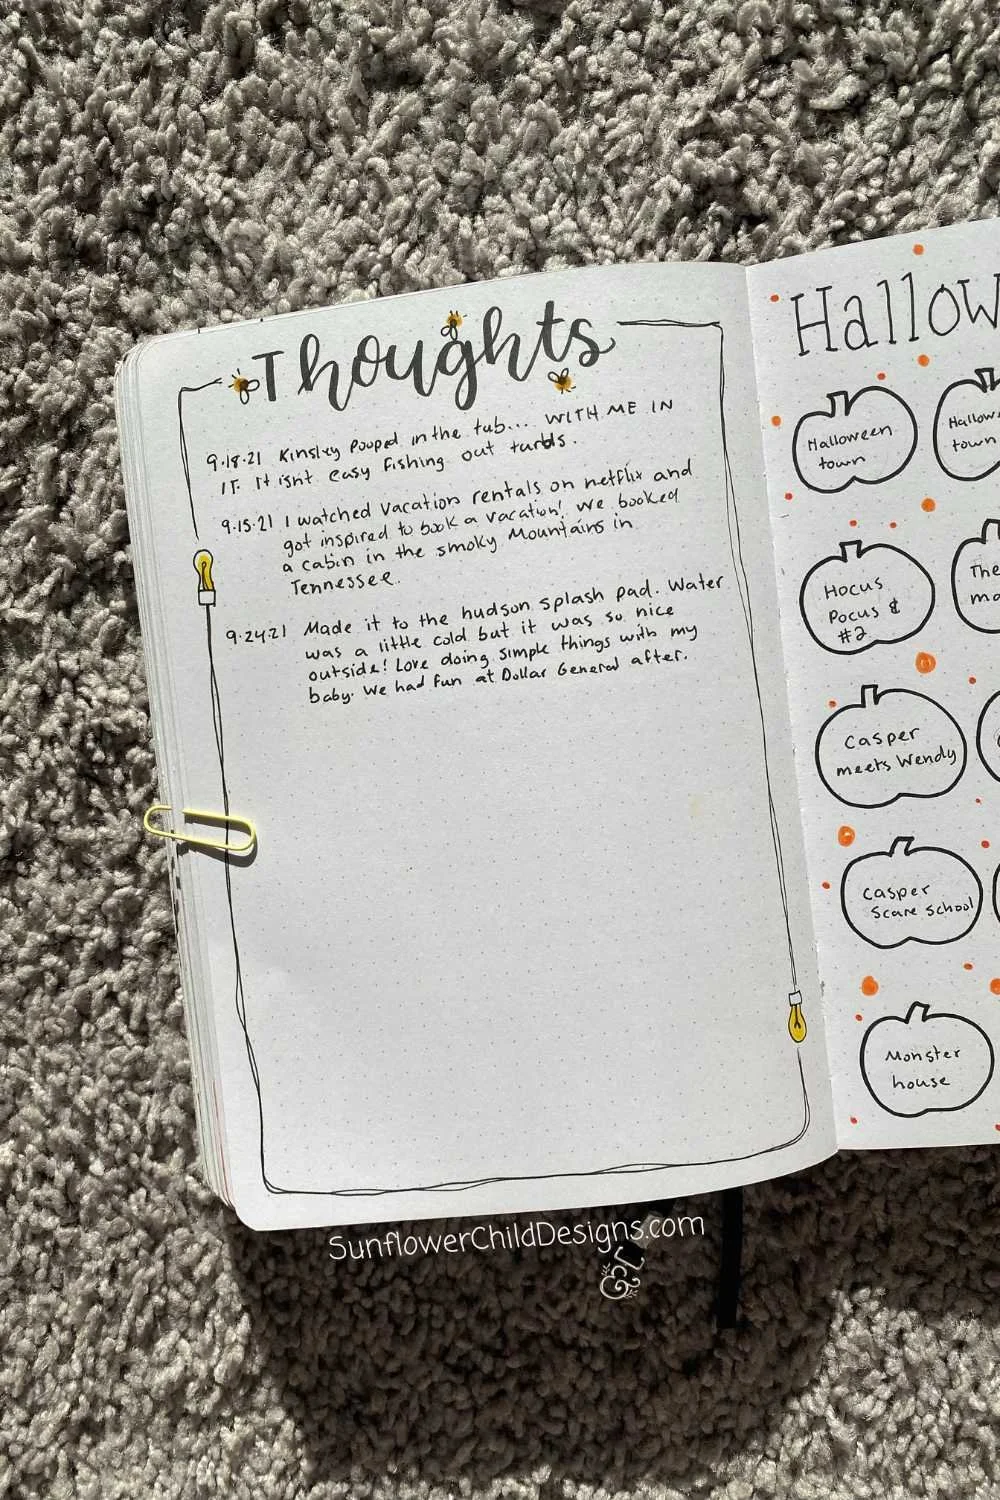 Thoughts
9.18.21 Kinsley pooped in the tub... WITH ME IN
IT. It isnt easy fishing out turds.
9.15.21 I watched vacation rentals on netflix and
got inspired to book a vacation! We booked
a cabin in the smoky Mountains in
Tennessee.
9.24.21 Made it to the hudson splash pad. Water
was a little cold but it was so nice
outside! Love doing simple things with my
baby. We had fun at Dollar General after.
Hallow
Halloween
town
Hallow
town
Hocus
Pocus &
#2
The
Casper
meets Wendy
Casper
Scare school
Monster
house
SunflowerChildDesigns.com